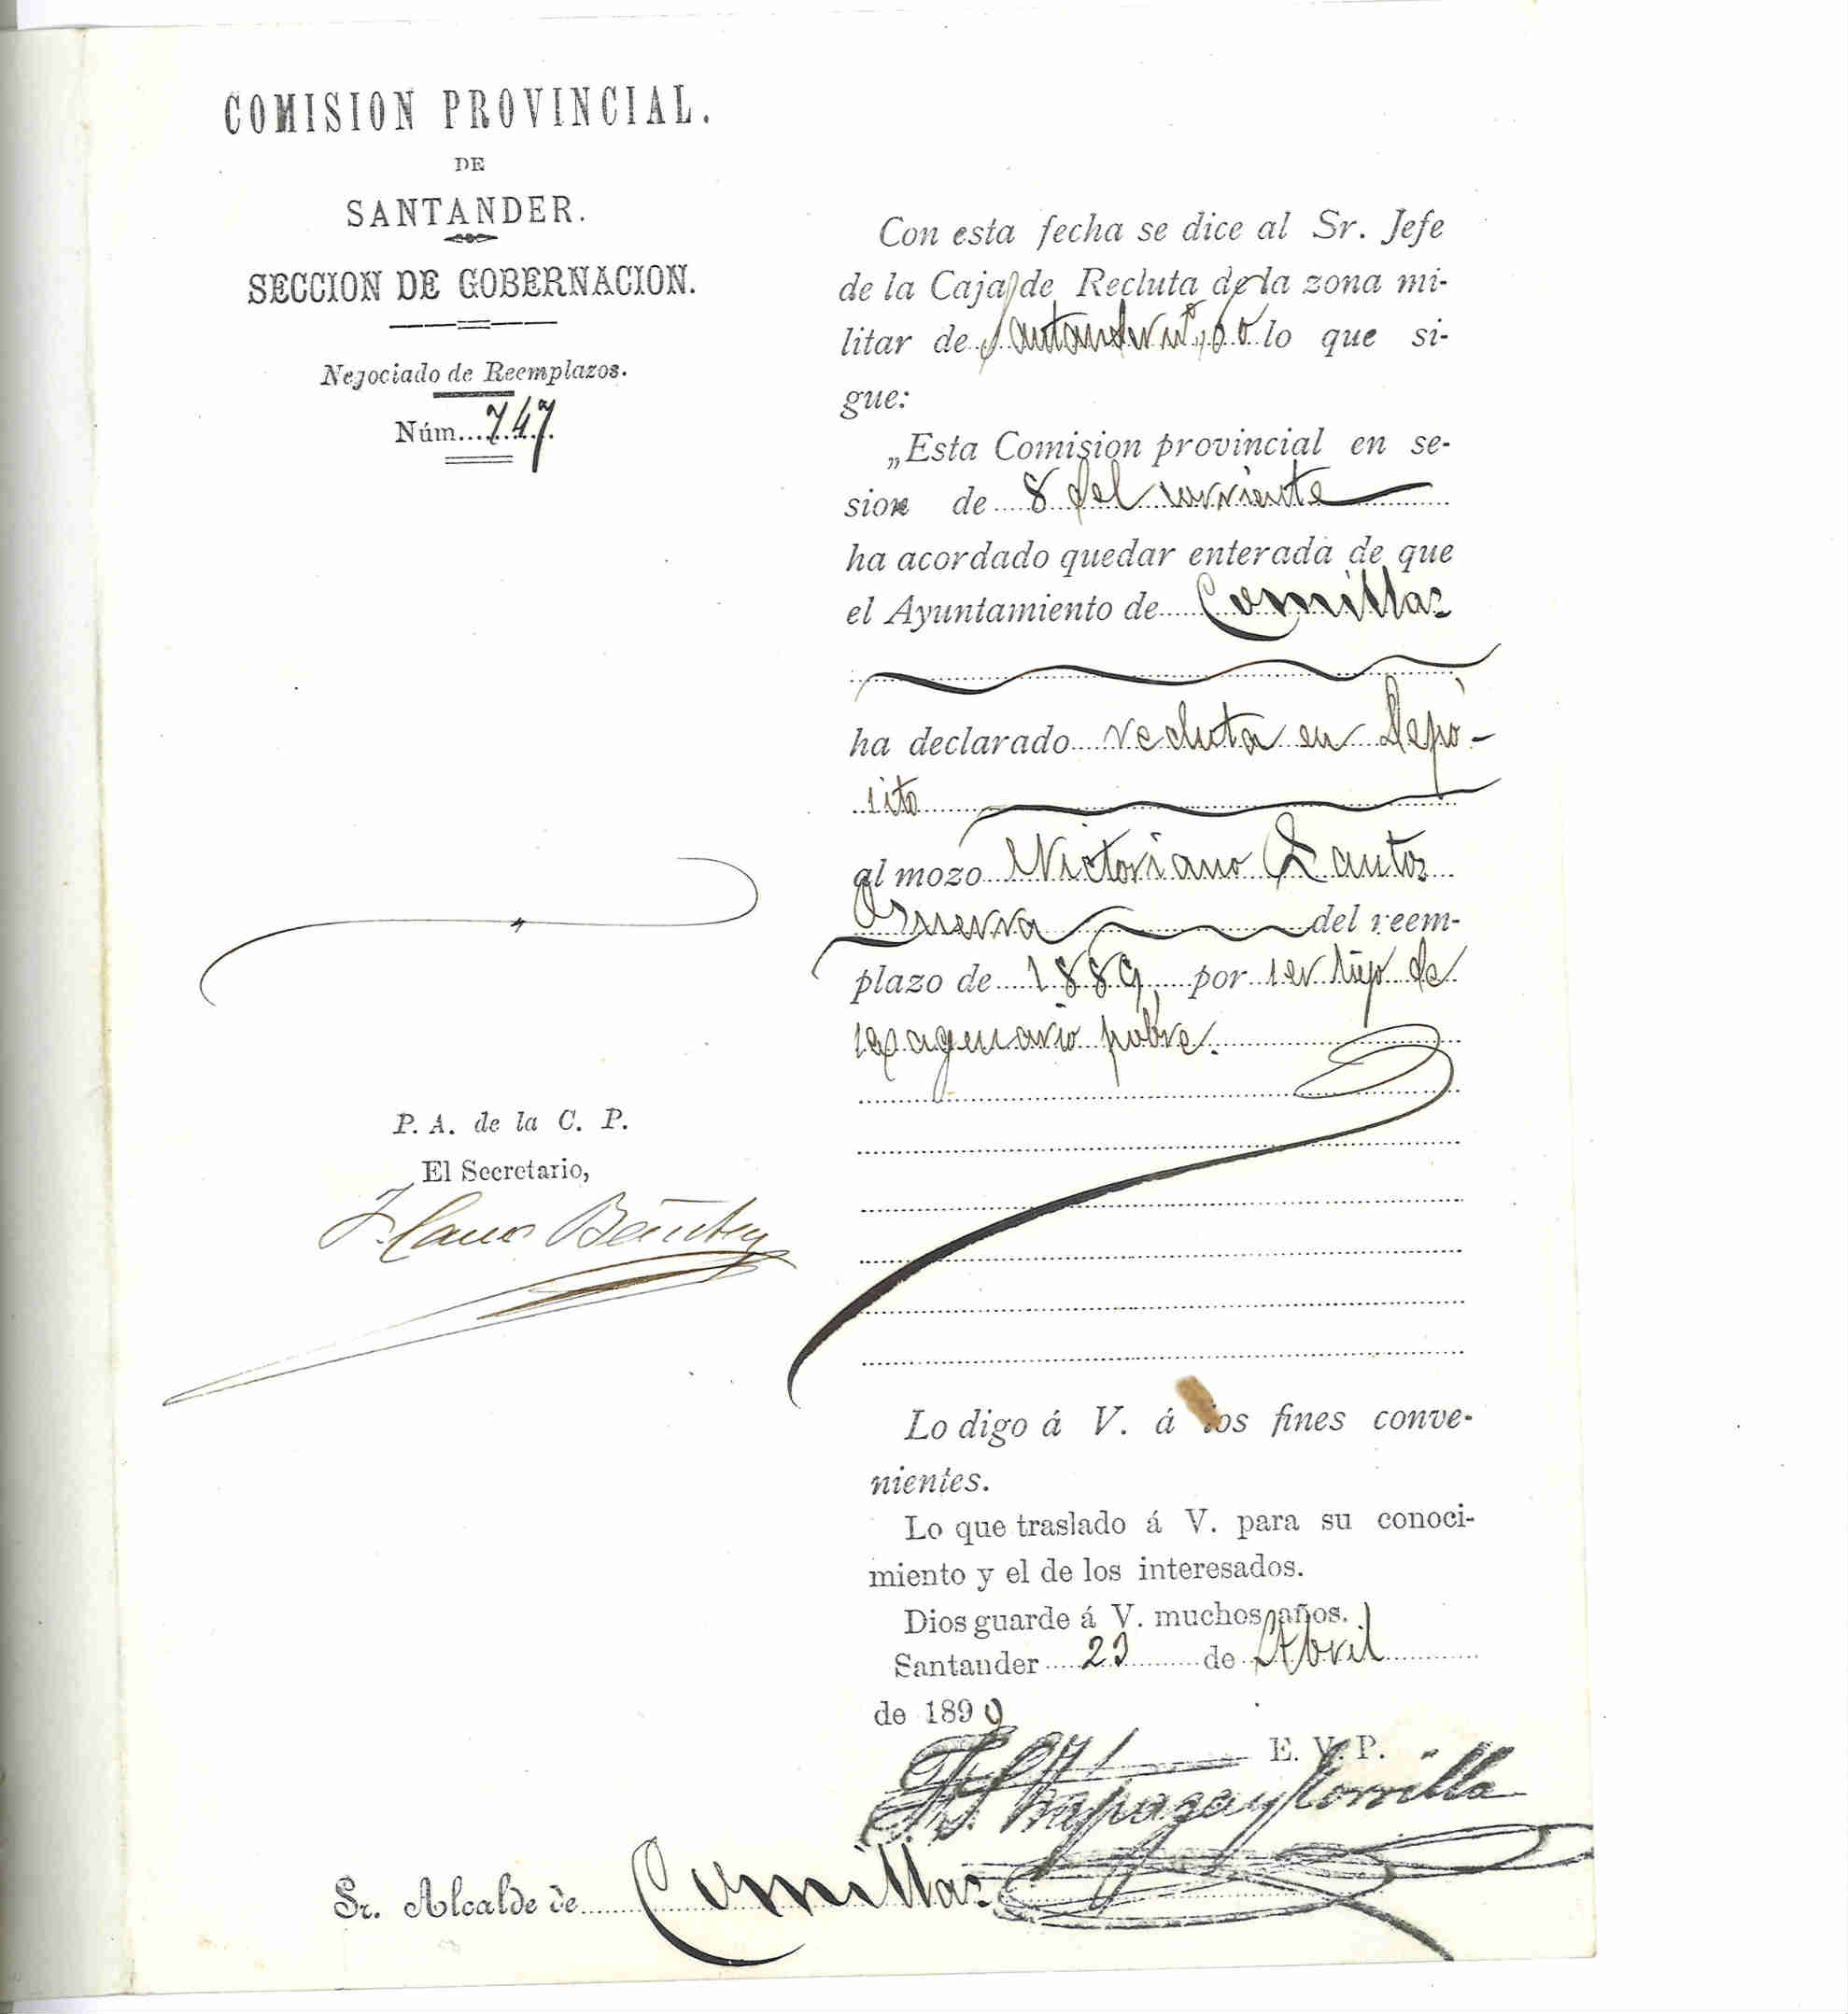 COMISION PROVINCIAL.
DE
SANTANDER.
SECCION DE GOBERNACION.
Negociado de Reemplazos.
Núm. 747
Con esta fecha se dice al Sr. Jefe
de la Caja de Recluta de la zona mi-
litar de Santander nº, 60 lo que si-
gue:
„Esta Comision provincial en se-
sion de 8 del corriente
ha acordado quedar enterada de que
el Ayuntamiento de Comillas
ha declarado recluta en Depó-
sito
al mozo Victoriano Santos
del reem-
plazo de 1889, por ser hijo de
sexagenario pobre.
P. A. de la C. P.
El Secretario,
Lo digo á V. á los fines conve-
nientes.
Lo que traslado á V. para su conoci-
miento y el de los interesados.
Dios guarde á V. muchos años.
Santander 23 de Abril
de 1890
E. V. P.
Sr. Alcalde de Comillas